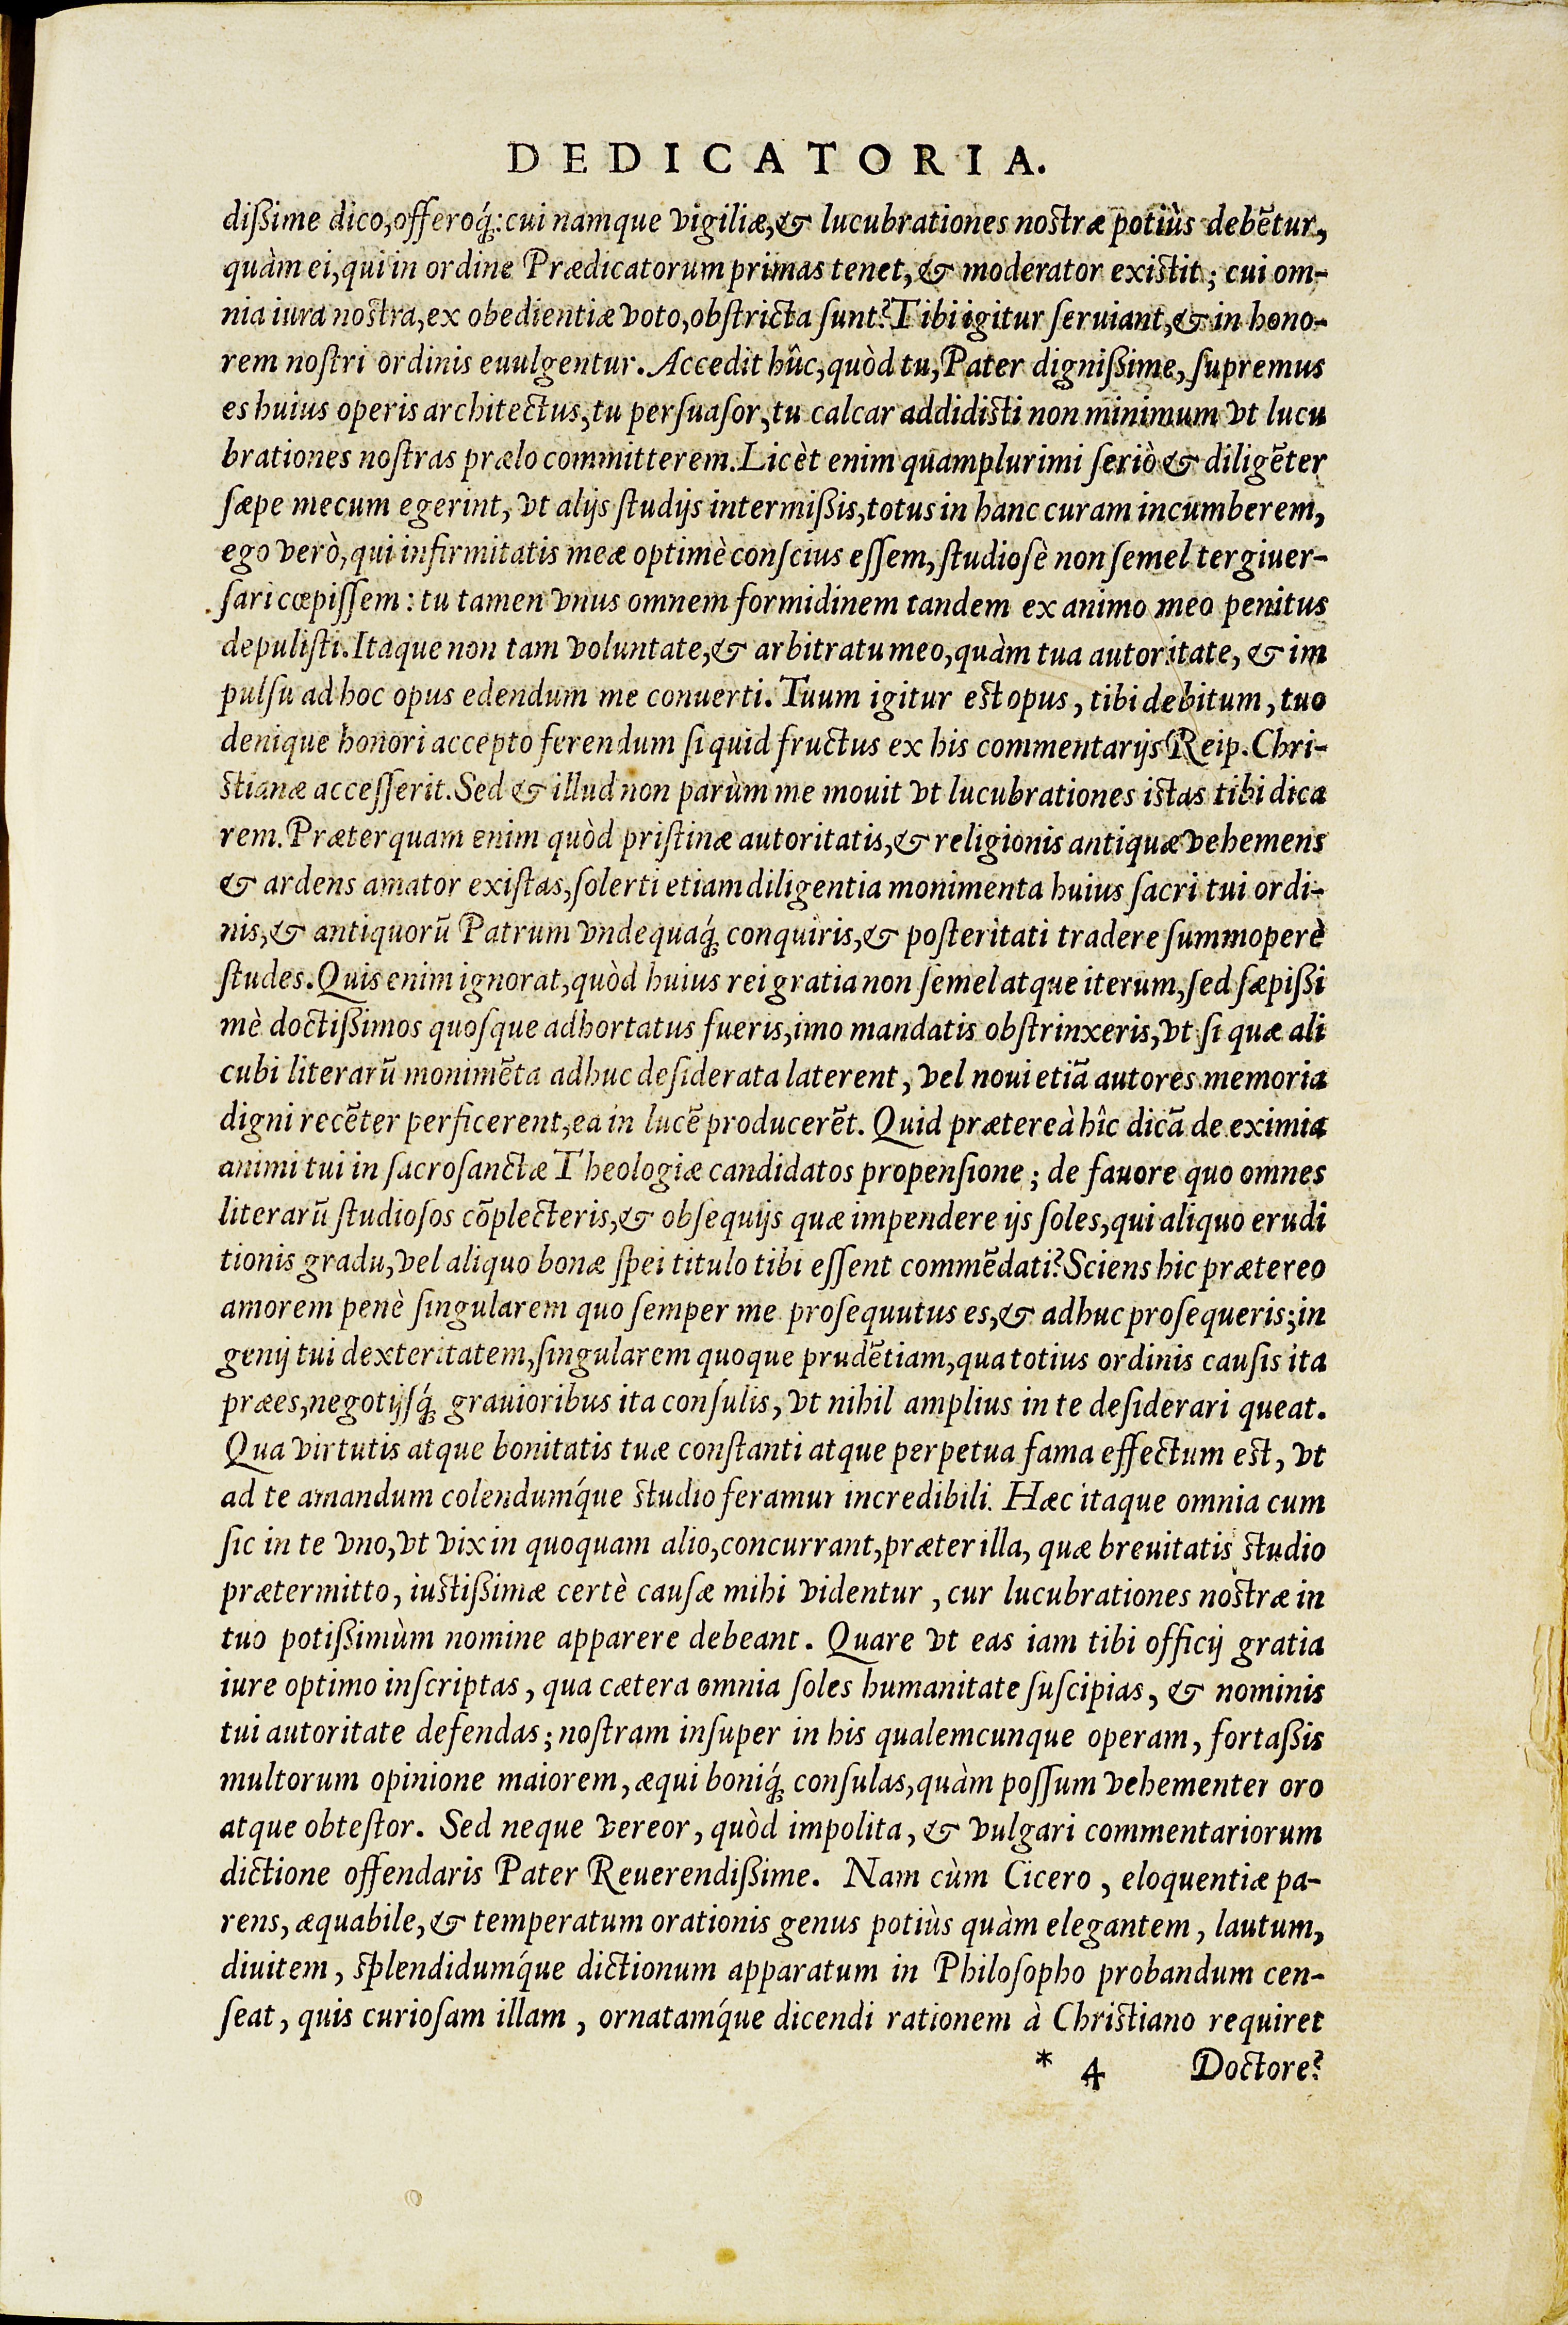 DEDICATORIA.
dißime dico, offeroq́;: cui namque vigiliæ, & lucubrationes nostræ potiùs debẽtur,
quàm ei, qui in ordine Prædicatorum primas tenet, & moderator existit; cui om-
nia iura nostra, ex obedientiæ voto, obſtricta ſunt? Tibi igitur ſeruiant, & in hono-
rem noſtri ordinis euulgentur. Accedit hûc, quòd tu, Pater dignißime, ſupremus
es huius operis architectus, tu perſuaſor, tu calcar addidisti non minimum vt lucu
brationes noſtras prælo committerem. Licèt enim quamplurimi ſeriò & diligẽter
ſæpe mecum egerint, vt alijs ſtudijs intermißis, totus in hanc curam incumberem,
ego verò, qui infirmitatis meæ optimè conſcius eſſem, ſtudioſè non ſemel tergiuer-
ſari cœpiſſem: tu tamen vnus omnem formidinem tandem ex animo meo penitus
depuliſti. Itaque non tam voluntate, & arbitratu meo, quàm tua autoritate, & im
pulſu ad hoc opus edendum me conuerti. Tuum igitur est opus, tibi debitum, tuo
denique honori accepto ferendum ſi quid fructus ex his commentarijs Reip. Chri-
stianæ acceſſerit. Sed & illud non parùm me mouit vt lucubrationes istas tibi dica
rem. Præterquam enim quòd priſtinæ autoritatis, & religionis antiquæ vehemens
& ardens amator exiſtas, ſolerti etiam diligentia monimenta huius ſacri tui ordi-
nis, & antiquorũ Patrum vndequaq́; conquiris, & poſteritati tradere ſummoperè
ſtudes. Quis enim ignorat, quòd huius rei gratia non ſemel atque iterum, ſed ſæpißi
mè doctißimos quoſque adhortatus fueris, imo mandatis obſtrinxeris, vt ſi quæ ali
cubi literarũ monimẽta adhuc deſiderata laterent, vel noui etiã autores memoria
digni recẽter perficerent, ea in lucẽ producerẽt. Quid prætereà hîc dicã de eximia
animi tui in ſacroſanctæ Theologiæ candidatos propenſione; de fauore quo omnes
literarũ ſtudioſos cõplecteris, & obſequijs quæ impendere ijs ſoles, qui aliquo erudi
tionis gradu, vel aliquo bonæ ſpei titulo tibi eſſent commẽdati? Sciens hic prætereo
amorem penè ſingularem quo ſemper me proſequutus es, & adhuc proſequeris; in
genij tui dexteritatem, ſingularem quoque prudẽtiam, qua totius ordinis cauſis ita
præes, negotijſq́; grauioribus ita conſulis, vt nihil amplius in te deſiderari queat.
Qua virtutis atque bonitatis tuæ conſtanti atque perpetua fama effectum est, vt
ad te amandum colendumq́ue studio feramur incredibili. Hæc itaque omnia cum
ſic in te vno, vt vix in quoquam alio, concurrant, præter illa, quæ breuitatis studio
prætermitto, iustißimæ certè cauſæ mihi videntur, cur lucubrationes nostræ in
tuo potißimùm nomine apparere debeant. Quare vt eas iam tibi officij gratia
iure optimo inſcriptas, qua cætera omnia ſoles humanitate ſuſcipias, & nominis
tui autoritate defendas; noſtram inſuper in his qualemcunque operam, fortaßis
multorum opinione maiorem, æqui boniq́; conſulas, quàm poſſum vehementer oro
atque obteſtor. Sed neque vereor, quòd impolita, & vulgari commentariorum
dictione offendaris Pater Reuerendißime. Nam cùm Cicero, eloquentiæ pa-
rens, æquabile, & temperatum orationis genus potiùs quàm elegantem, lautum,
diuitem, ſplendidumq́ue dictionum apparatum in Philoſopho probandum cen-
ſeat, quis curioſam illam, ornatamq́ue dicendi rationem à Christiano requiret
* 4 Doctore?